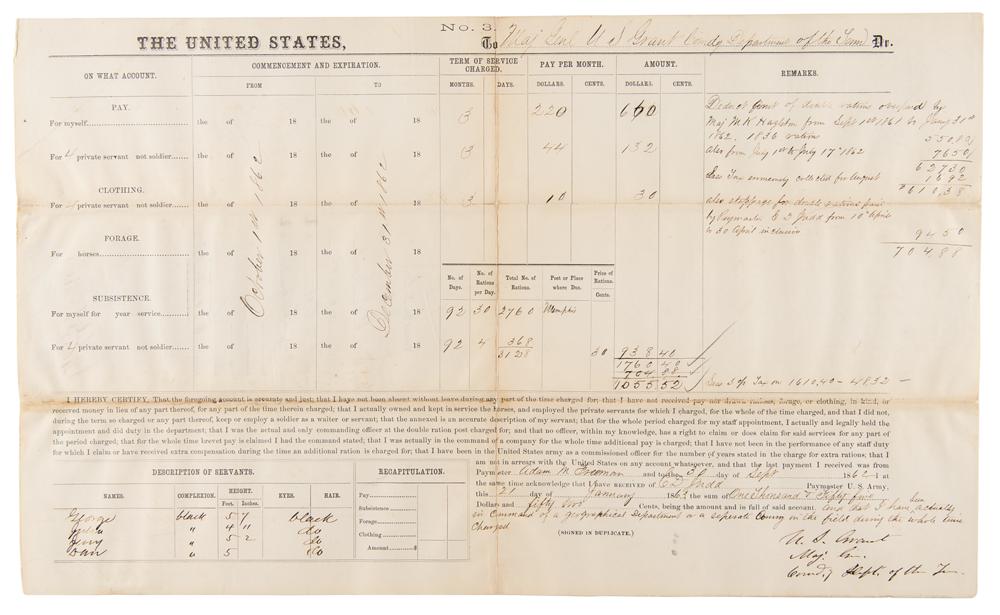 No. 3.
THE UNITED STATES, To Maj Genl U S Grant Comdg Department of the Tenn Dr.
ON WHAT ACCOUNT. COMMENCEMENT AND EXPIRATION. TERM OF SERVICE CHARGED. PAY PER MONTH. AMOUNT. REMARKS.
FROM TO MONTHS. DAYS. DOLLARS. CENTS. DOLLARS. CENTS.
PAY.
For myself the of 18 the of 18 3 220 660
For 4 private servant not soldier the of 18 the of 18 3 44 132
CLOTHING.
For private servant not soldier the of 18 the of 18 3 10 30
FORAGE.
For horses the of 18 the of 18
October 1st 1862
December 31st 1862
No. of Days. No. of Rations per Day. Total No. of Rations. Post or Place where Due. Price of Rations. Cents.
SUBSISTENCE.
For myself for year service the of 18 the of 18 92 30 2760 Memphis
For 4 private servant not soldier the of 18 the of 18 92 4 368
3128 30 938 40
1760 40
704 88
1055 52
Deduct amt of double rations overpaid by
Maj M K from Sept 1st 1861 to 31st
1862. 1836 rations 550,80
also from July 1st to July 17th 1862 7650
62730
Less Tax collected for August 1692
610,38
also stoppage for double rations paid
by Paymaster E D Judd from 10th April
to 30 April inclusive 9450
704,88
Less 3 % Tax on 1610,40 - 4832 -
I HEREBY CERTIFY, That the foregoing account is accurate and just; that I have not been absent without leave during any part of the time charged for; that I have not received pay nor drawn rations, forage, or clothing, in kind, or
received money in lieu of any part thereof, for any part of the time therein charged; that I actually owned and kept in service the horses, and employed the private servants for which I charged, for the whole of the time charged, and that I did not,
during the term so charged or any part thereof, keep or employ a soldier as a waiter or servant; that the annexed is an accurate description of my servant; that for the whole period charged for my staff appointment, I actually and legally held the
appointment and did duty in the department; that I was the actual and only commanding officer at the double ration post charged for; and that no officer, within my knowledge, has a right to claim or does claim for said services for any part of
the period charged; that for the whole time brevet pay is claimed I had the command stated; that I was actually in the command of a company for the whole time additional pay is charged; that I have not been in the performance of any staff duty
for which I claim or have received extra compensation during the time an additional ration is charged for; that I have been in the United States army as a commissioned officer for the number of years stated in the charge for extra rations; that I
am not in arrears with the United States on any account whatsoever, and that the last payment I received was from
Paymaster Adam M. and to the 30 day of Sept 1862 I at
the same time acknowledge that I have RECEIVED of E D Judd Paymaster U. S. Army,
this 21 day of January 1863 the sum of One Thousand & Fifty five
Dollars and fifty two Cents, being the amount and in full of said account. And that I have actually been
in command of a geographical Department or a seperate in the field during the whole time
charged
(SIGNED IN DUPLICATE.)
U. S. Grant
Maj. Gen.
Comdg Dept. of the Ten.
DESCRIPTION OF SERVANTS.
NAMES. COMPLEXION. HEIGHT. Feet. Inches. EYES. HAIR.
George black 5 7 black
" 4 11 do
" 5 2 do
Dan " 5 do
RECAPITULATION.
Pay
Subsistence
Forage
Clothing
Amount $